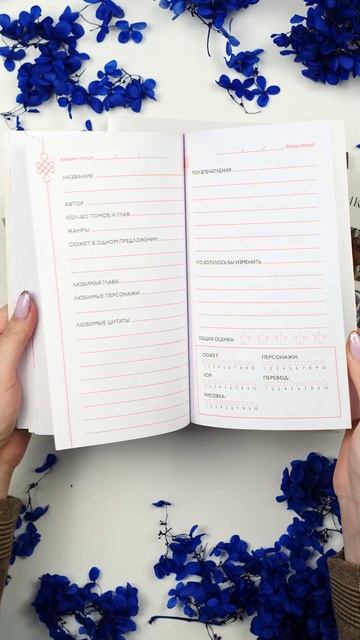 Начало чтения / /
НАЗВАНИЕ
АВТОР
КОЛ-ВО ТОМОВ И ГЛАВ
ЖАНРЫ
СЮЖЕТ В ОДНОМ ПРЕДЛОЖЕНИИ
ЛЮБИМАЯ ГЛАВА
ЛЮБИМЫЕ ПЕРСОНАЖИ
ЛЮБИМЫЕ ЦИТАТЫ
/ / Конец чтения
МОИ ВПЕЧАТЛЕНИЯ
ЧТО ХОТЕЛОСЬ БЫ ИЗМЕНИТЬ
ОБЩАЯ ОЦЕНКА:
СЮЖЕТ: ПЕРСОНАЖИ:
1 2 3 4 5 6 7 8 9 10 1 2 3 4 5 6 7 8 9 10
ЛОР: ПЕРЕВОД:
1 2 3 4 5 6 7 8 9 10 1 2 3 4 5 6 7 8 9 10
РИСОВКА:
1 2 3 4 5 6 7 8 9 10